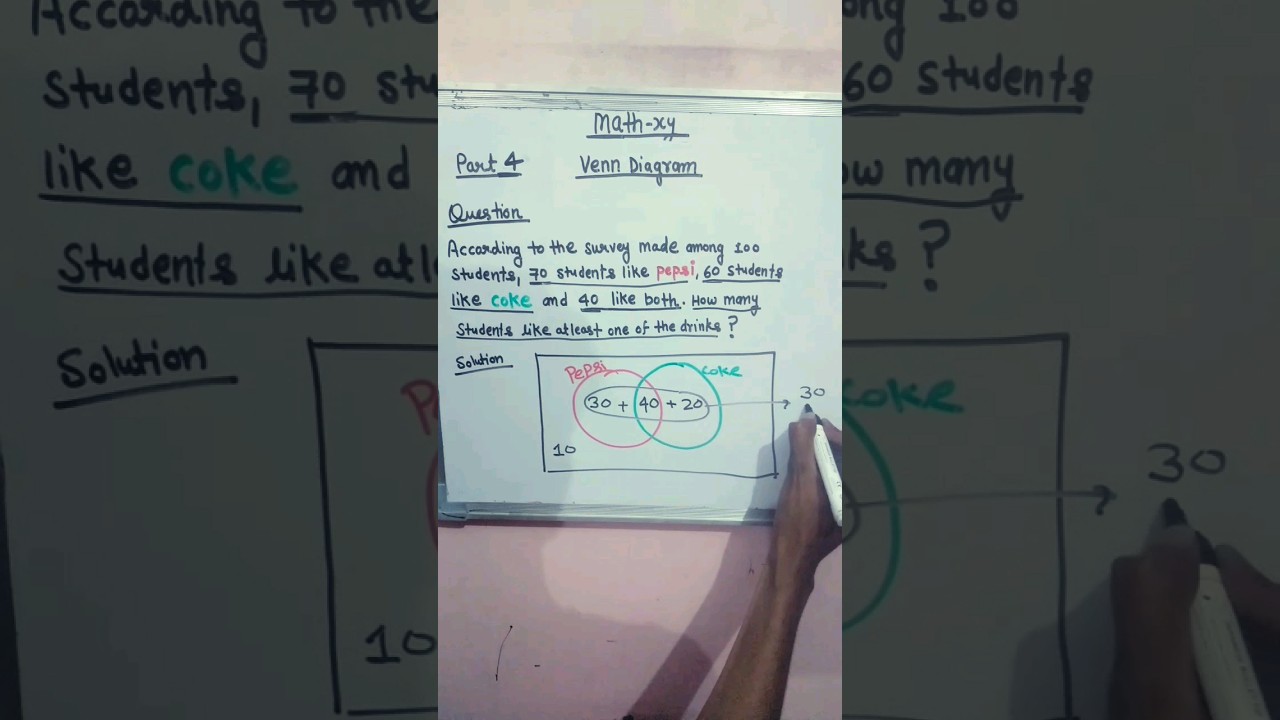 Math-xy
Part 4 Venn Diagram
Question
According to the survey made among 100
students, 70 students like pepsi, 60 students
like coke and 40 like both. How many
Students like atleast one of the drinks ?
Solution
Pepsi coke
30 + 40 + 20 30
10